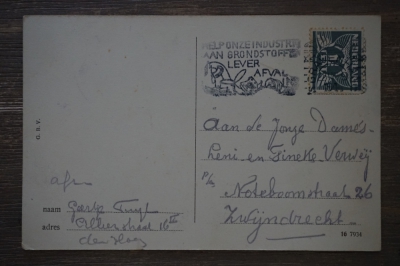 HELP ONZE INDUSTRIE
AAN GRONDSTOFFEN
LEVER
AFVAL
NEDERLAND
G. B. V.
Aan de Jonge Dames
Leni en Tineke Verweij
p/a
Noteboomstraat 26
Zwijndrecht.
afz
naam
adres
straat 16
den Haag
16 7934